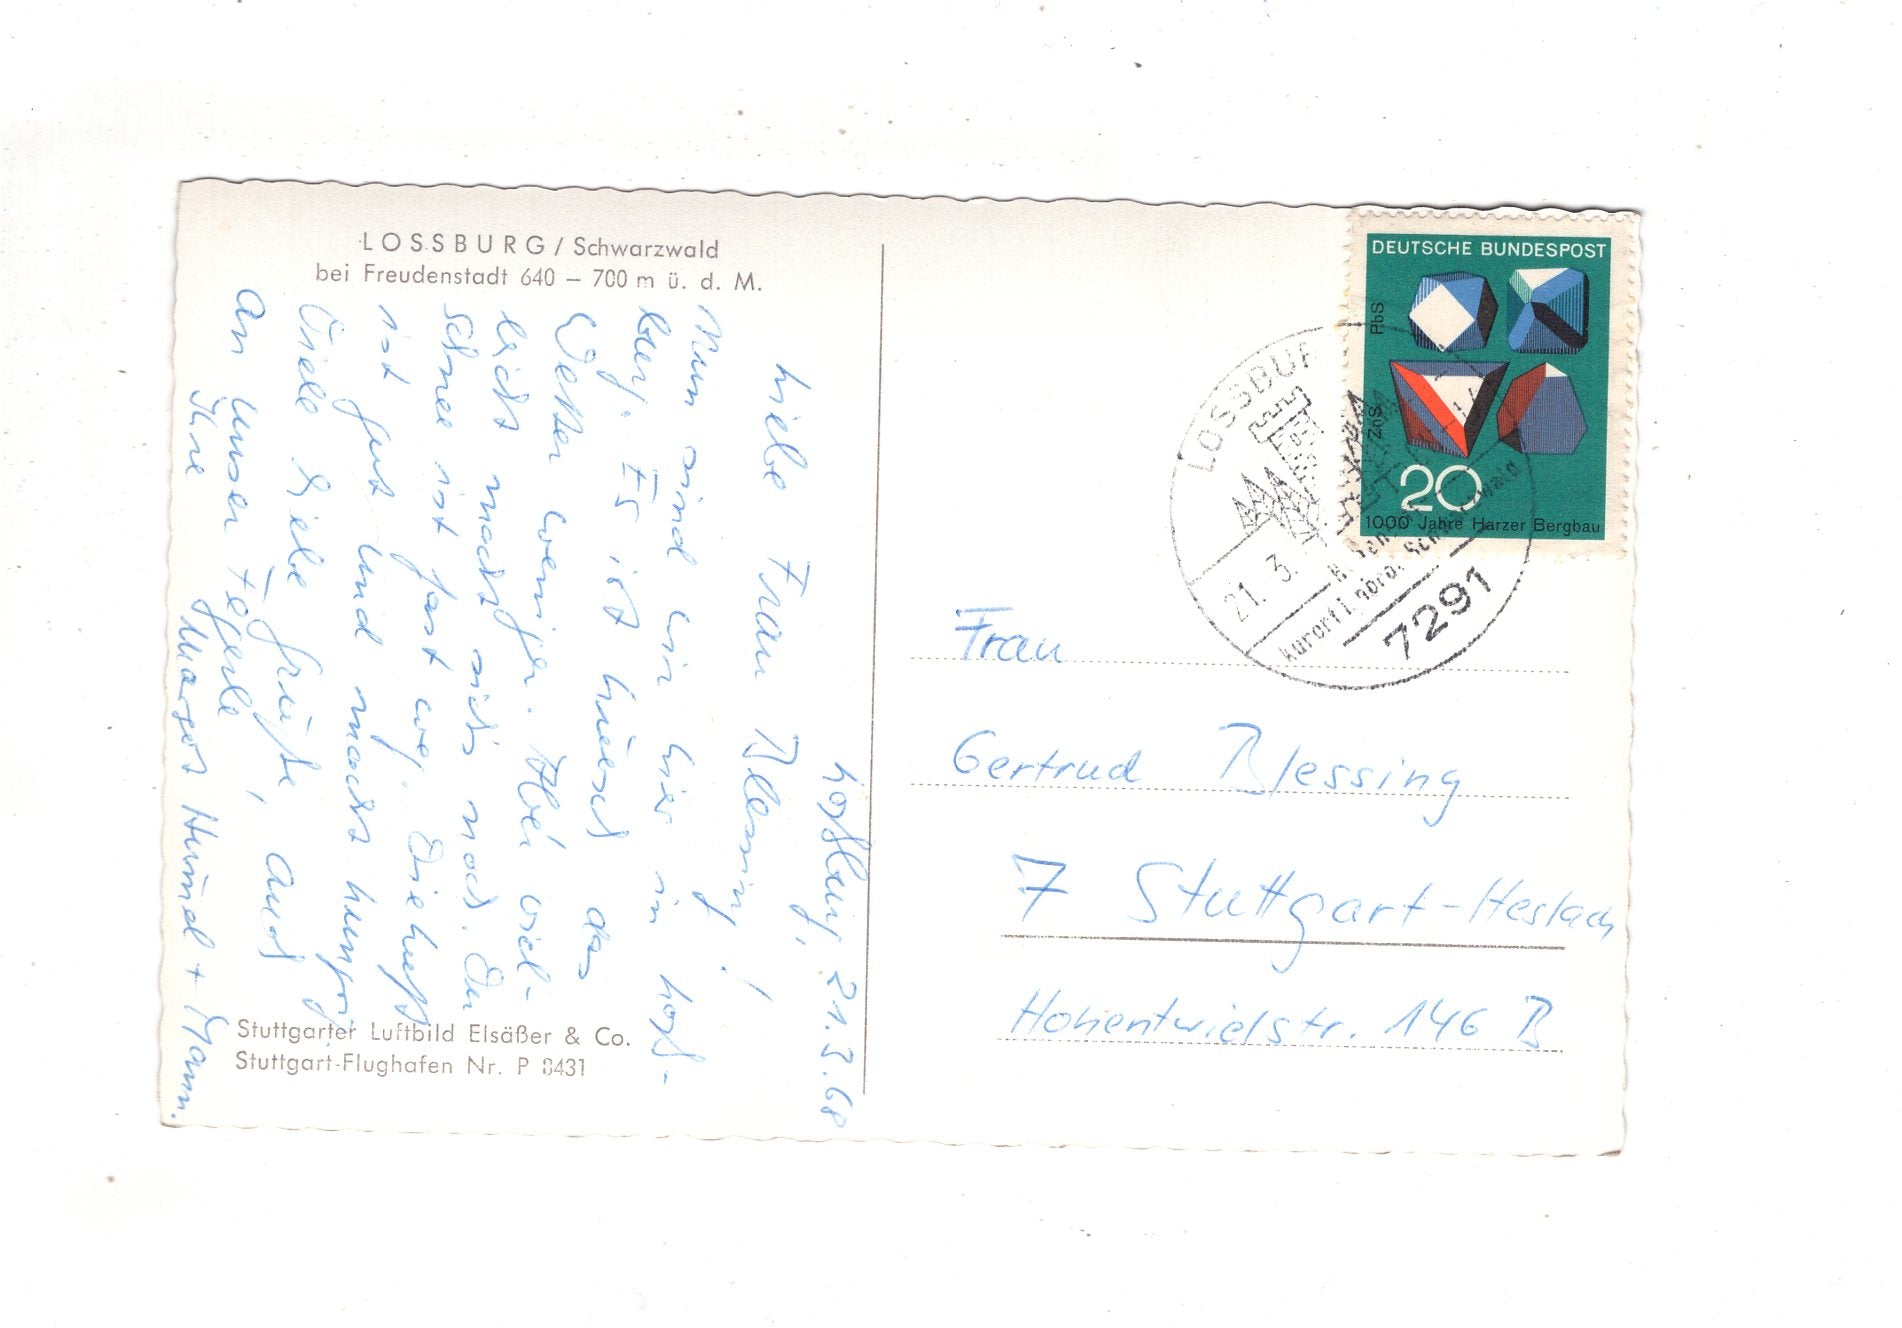 LOSSBURG / Schwarzwald
bei Freudenstadt 640 – 700 m ü. d. M.
Loßburg, 21.3.68
Liebe Frau Blessing!
Nun sind wir hier in Loß-
burg. Es ist hübsch das
Wetter weniger. Aber viel-
leicht macht sichs noch. Der
Schnee ist fast weg. Die Luft
ist gut und macht hungrig
Viele liebe Grüße, auch
an unser Fegerle
Ihre
Margot Hummel + Mann.
Stuttgarter Luftbild Elsäßer & Co.
Stuttgart-Flughafen Nr. P 8431
DEUTSCHE BUNDESPOST
PbS
ZnS
20
1000 Jahre Harzer Bergbau
LOSSBUR
21. 3.
kurort i. nörd. Schwarzwald
7291
Frau
Gertrud Blessing
7 Stuttgart-Heslach
Hohentwielstr. 146 B